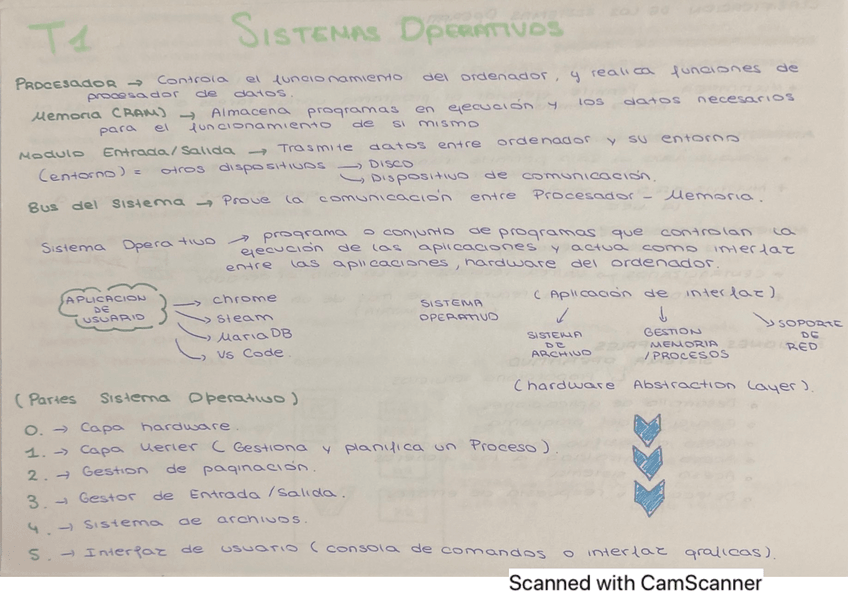 T1 SISTEMAS OPERATIVOS
PROCESADOR → Controla el funcionamiento del ordenador, y realiza funciones de
procesador de datos.
Memoria (RAM) → Almacena programas en ejecución y los datos necesarios
para el funcionamiento de si mismo
Modulo Entrada/Salida → Trasmite datos entre ordenador y su entorno
(entorno) = otros dispositivos → DISCO
↳ Dispositivo de comunicación.
Bus del Sistema → Prove la comunicación entre Procesador - Memoria.
Sistema Operativo → programa o conjunto de programas que controlan la
ejecución de las aplicaciones y actua como interfaz
entre las aplicaciones, hardware del ordenador.
APLICACION
DE
USUARIO
→ chrome
→ steam
→ MariaDB
→ Vs Code.
SISTEMA
OPERATIVO
(Aplicación de interfaz)
SISTEMA
DE
ARCHIVO
GESTION
MEMORIA
/PROCESOS
SOPORTE
DE
RED
(hardware Abstraction Layer).
(Partes Sistema Operativo)
0. → Capa hardware.
1. → Capa Kerler (Gestiona y planifica un Proceso).
2. → Gestion de paginación.
3. → Gestor de Entrada/Salida.
4. → Sistema de archivos.
5. → Interfaz de usuario (consola de comandos o interfaz graficas).
Scanned with CamScanner